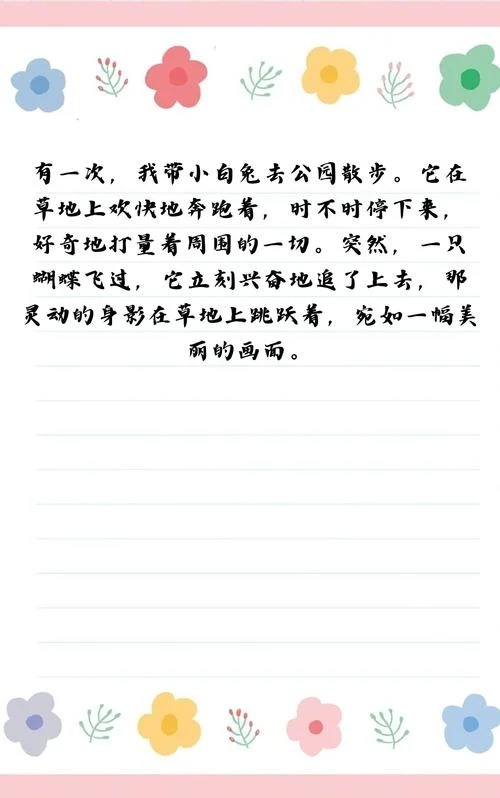 有一次，我带小白兔去公园散步。它在
草地上欢快地奔跑着，时不时停下来，
好奇地打量着周围的一切。突然，一只
蝴蝶飞过，它立刻兴奋地追了上去，那
灵动的身影在草地上跳跃着，宛如一幅美
丽的画面。